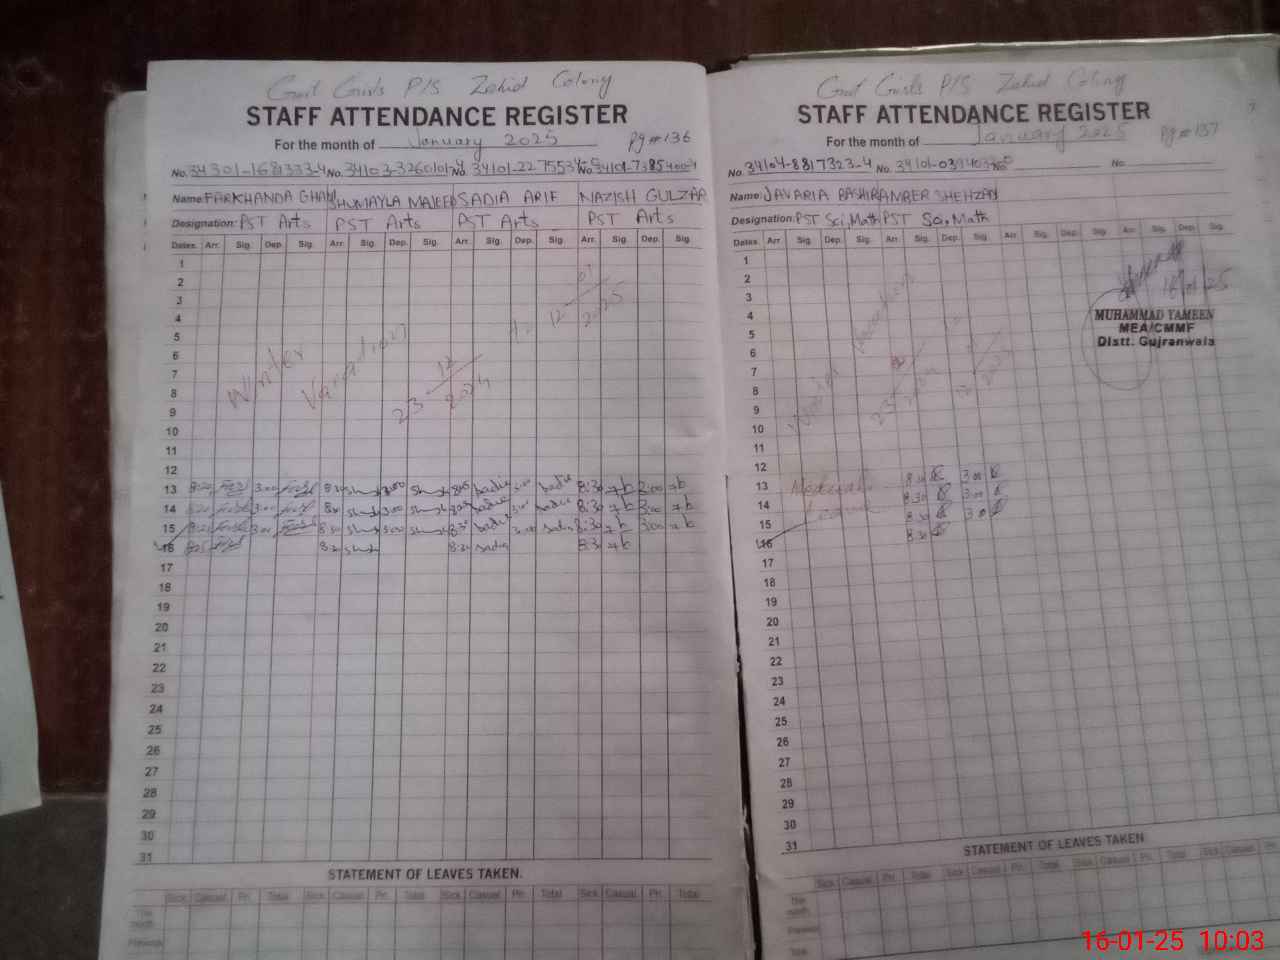 Govt Girls P/S Zahid Colony
STAFF ATTENDANCE REGISTER
For the month of January 2025 Pg # 136
No. 34301-1681333-4 No. 34103-3260101-4 No. 34101-2275534- No. 34101-7385400-4
Name: FARKHANDA GHANI SHUMAYLA MAJEED SADIA ARIF NAZISH GULZAR
Designation: PST Arts PST Arts PST Arts PST Arts
Dates. Arr. Sig. Dep. Sig. Arr. Sig. Dep. Sig. Arr. Sig. Dep. Sig. Arr. Sig. Dep. Sig.
1
2
3
4
5
6
7
8
9
10
11
12
Winter Vacations 23-12-2024 to 12-01-2025
13 8:30 3:00 8:30 3:00 8:30 Sadia 3:00 Sadia 8:30 3:00
14 8:30 3:00 8:30 3:00 8:30 Sadia 3:00 Sadia 8:30 3:00
15 8:30 3:00 8:30 3:00 8:30 Sadia 3:00 Sadia 8:30 3:00
16 8:25 8:30 8:30 Sadia 8:30
17
18
19
20
21
22
23
24
25
26
27
28
29
30
31
STATEMENT OF LEAVES TAKEN.
Sick Casual Pri. Total Sick Casual Pri. Total Sick Casual Pri. Total Sick Casual Pri. Total
This month
Previous
Govt Girls P/S Zahid Colony
STAFF ATTENDANCE REGISTER
For the month of January 2025 Pg # 137
No. 34104-8817323-4 No. 34101- No. No.
Name: JAVARIA BASHIR AMBER SHEHZADI
Designation: PST Sci, Math PST Sci, Math
Dates. Arr. Sig. Dep. Sig. Arr. Sig. Dep. Sig. Arr. Sig. Dep. Sig. Arr. Sig. Dep. Sig.
1
2
3
4
5
6
7
8
9
10
11
12
Winter Vacations
13 8:30 3:00
14 8:30 3:00
15 8:30 3:00
16 8:30
Leave
17
18
19
20
21
22
23
24
25
26
27
28
29
30
31
16/01/25
MUHAMMAD YAMEEN
MEA/CMMF
Distt. Gujranwala
STATEMENT OF LEAVES TAKEN
Sick Casual Pri. Total Sick Casual Pri. Total Sick Casual Pri. Total Sick Casual Pri. Total
This month
Previous
Total
16-01-25 10:03